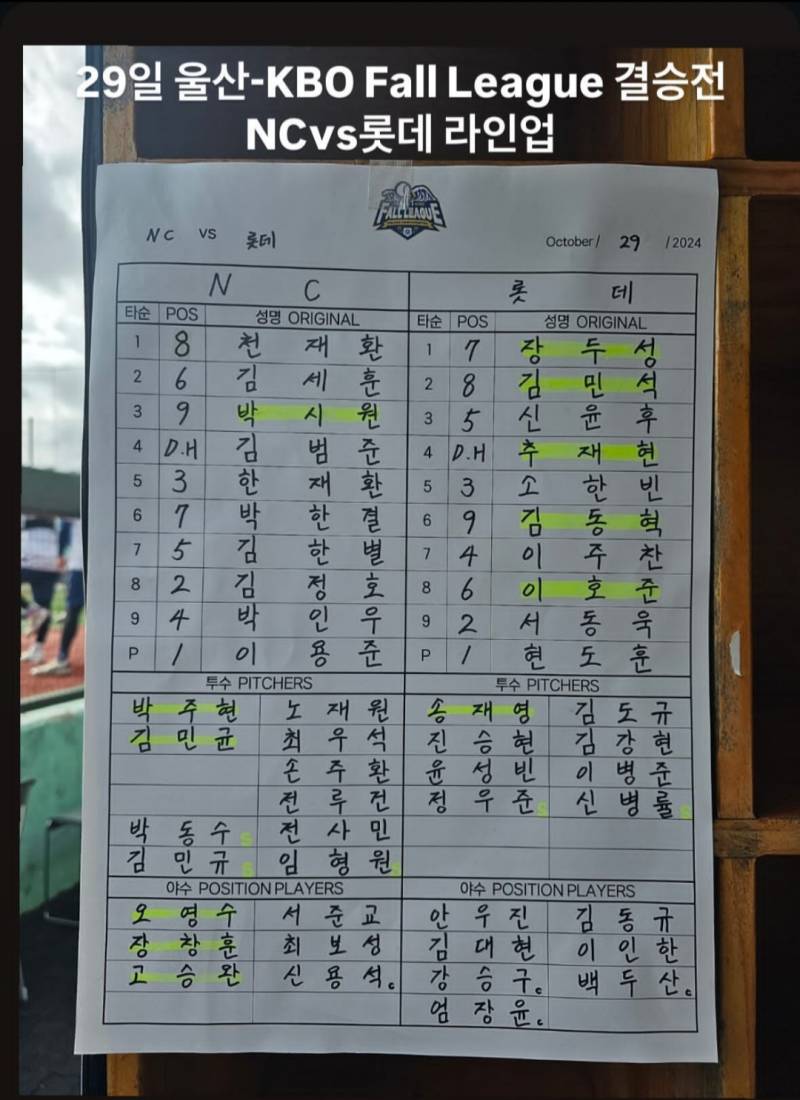 29일 울산-KBO Fall League 결승전
NCvs롯데 라인업
FALL LEAGUE
NC VS 롯데
October/ 29 /2024
N C 롯 데
타순 POS 성명 ORIGINAL 타순 POS 성명 ORIGINAL
1 8 천 재 환 1 7 장 두 성
2 6 김 세 훈 2 8 김 민 석
3 9 박 시 원 3 5 신 윤 후
4 D.H 김 범 준 4 D.H 추 재 현
5 3 한 재 환 5 3 소 한 빈
6 7 박 한 결 6 9 김 동 혁
7 5 김 한 별 7 4 이 주 찬
8 2 김 정 호 8 6 이 호 준
9 4 박 인 우 9 2 서 동 욱
P 1 이 용 준 P 1 현 도 훈
투수 PITCHERS 투수 PITCHERS
박 주 현 노 재 원 송 재 영 김 도 규
김 민 균 최 우 석 진 승 현 김 강 현
손 주 환 윤 성 빈 이 병 준
전 루 건 정 우 준 S 신 병 률 S
박 동 수 S 전 사 민
김 민 규 S 임 형 원 S
야수 POSITION PLAYERS 야수 POSITION PLAYERS
오 영 수 서 준 교 안 우 진 김 동 규
장 창 훈 최 보 성 김 대 현 이 인 한
고 승 완 신 용 석 c 강 승 구 c 백 두 산 c
엄 장 윤 c